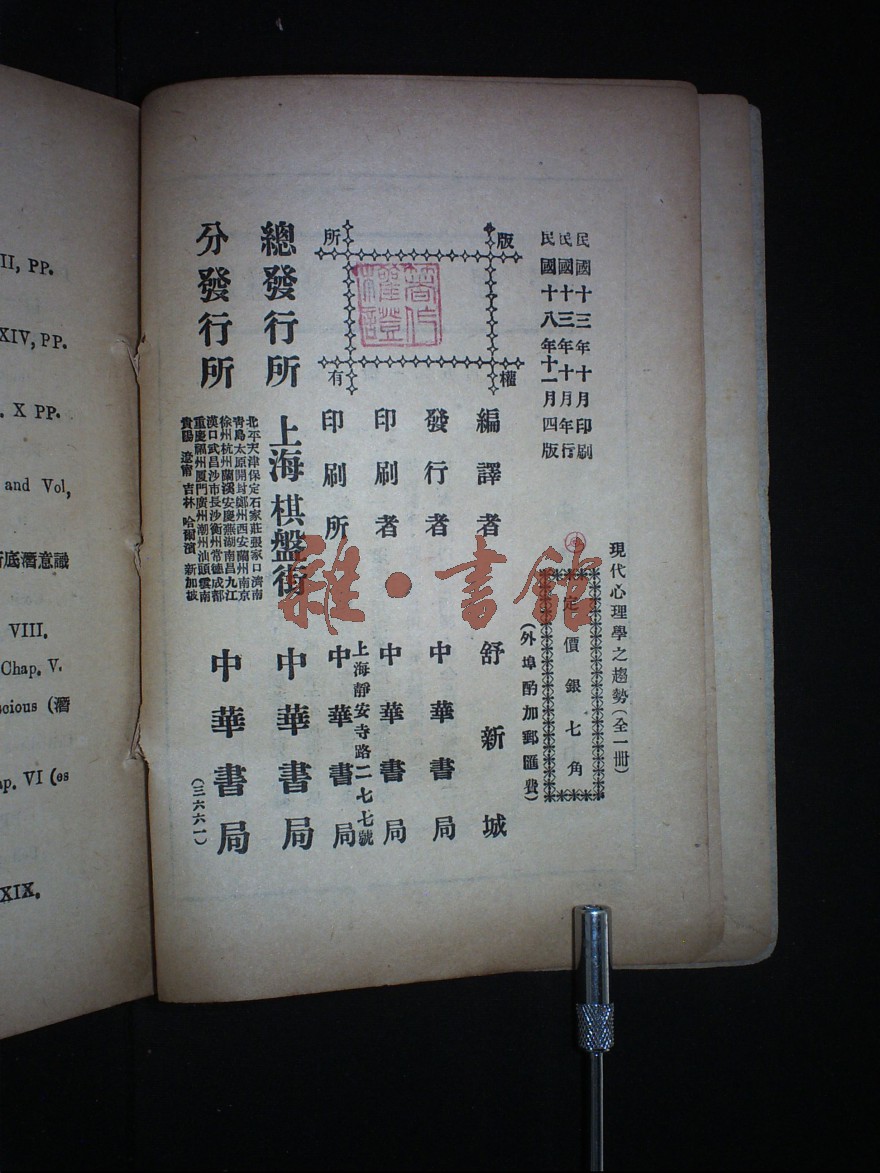 民國十三年十月印刷
民國十三年十月年行
民國十八年十一月四版
現代心理學之趨勢(全一冊)
定價銀七角
(外埠酌加郵匯費)
版權所有
編譯者 舒新城
發行者 中華書局
印刷者 中華書局
上海靜安寺路二七七號
印刷所 中華書局
總發行所 上海棋盤街 中華書局
分發行所 中華書局
北平天津保定石家莊張家口濟南
青島太原開封鄭州西安蘭州南京
徐州杭州蘭溪安慶蕪湖南昌九江
漢口武昌沙市長沙衡州常德成都
重慶福州厦門廣州潮州汕頭雲南
貴陽 遼甯 吉林 哈爾濱 新加坡
(三六六一)
著作權證
雜·書館
II, PP.
XIV, PP.
. X PP.
and Vol,
底潛意識
VIII.
Chap. V.
cious (潛
ap. VI (es
XIX.